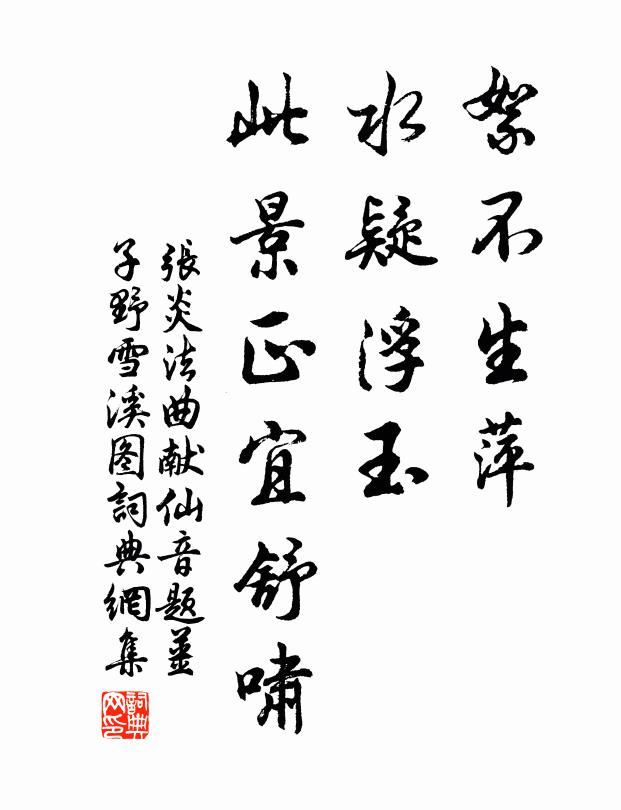 絮不生萍
水疑浮玉
此景正宜舒嘯
張炎法曲献仙音题姜
子野雪溪图詞典網集
詞典網印